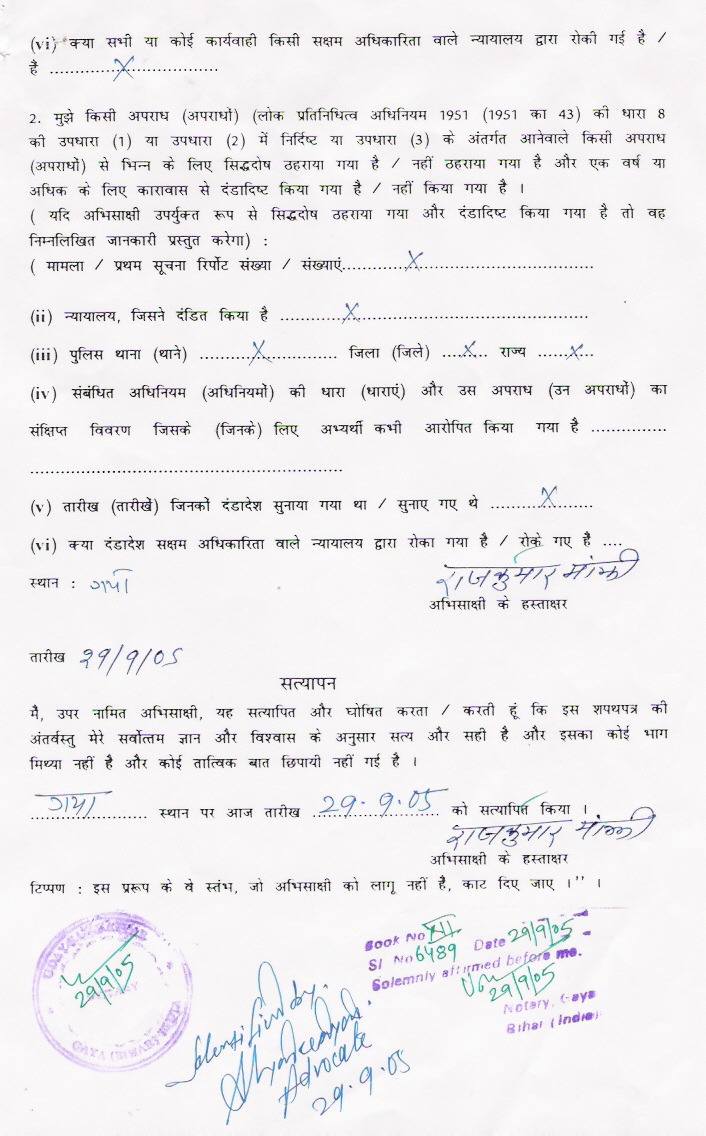 (vi) क्या सभी या कोई कार्यवाही किसी सक्षम अधिकारिता वाले न्यायालय द्वारा रोकी गई है /
हैं ........X...............
2. मुझे किसी अपराध (अपराधों) (लोक प्रतिनिधित्व अधिनियम 1951 (1951 का 43) की धारा 8
की उपधारा (1) या उपधारा (2) में निर्दिष्ट या उपधारा (3) के अंतर्गत आनेवाले किसी अपराध
(अपराधों) से भिन्न के लिए सिद्धदोष ठहराया गया है / नहीं ठहराया गया है और एक वर्ष या
अधिक के लिए कारावास से दंडादिष्ट किया गया है / नहीं किया गया है ।
( यदि अभिसाक्षी उपर्युक्त रूप से सिद्धदोष ठहराया गया और दंडादिष्ट किया गया है तो वह
निम्नलिखित जानकारी प्रस्तुत करेगा) :
( मामला / प्रथम सूचना रिर्पोट संख्या / संख्याएं.........X......................
(ii) न्यायालय, जिसने दंडित किया है .........X..............................
(iii) पुलिस थाना (थाने) .......X.......... जिला (जिले) ...X... राज्य ....X..
(iv) संबंधित अधिनियम (अधिनियमों) की धारा (धाराएं) और उस अपराध (उन अपराधों) का
संक्षिप्त विवरण जिसके (जिनके) लिए अभ्यर्थी कभी आरोपित किया गया है ..............
..........................................................
(v) तारीख (तारीखें) जिनकों दंडादेश सुनाया गया था / सुनाए गए थे .......X......
(vi) क्या दंडादेश सक्षम अधिकारिता वाले न्यायालय द्वारा रोका गया है / रोके गए है ....
स्थान : गया राजकुमार मांझी
अभिसाक्षी के हस्ताक्षर
तारीख 29/9/05
सत्यापन
मै, उपर नामित अभिसाक्षी, यह सत्यापित और घोषित करता / करती हूं कि इस शपथपत्र की
अंतर्वस्तु मेरे सर्वोत्तम ज्ञान और विश्वास के अनुसार सत्य और सही है और इसका कोई भाग
मिथ्या नहीं है और कोई तात्विक बात छिपायी नहीं गई है ।
गया स्थान पर आज तारीख 29.9.05 को सत्यापित किया ।
राजकुमार मांझी
अभिसाक्षी के हस्ताक्षर
टिप्पण : इस प्ररूप के वे स्तंभ, जो अभिसाक्षी को लागू नहीं है, काट दिए जाए ।'' ।
Book No XII Date 29/9/05
Sl No 6489
Solemnly affirmed before me.
29/9/05
Notary, Gaya
Bihar (India)
29/9/05
GAYA (BIHAR) INDIA
Identified by.
Advocate
29.9.05